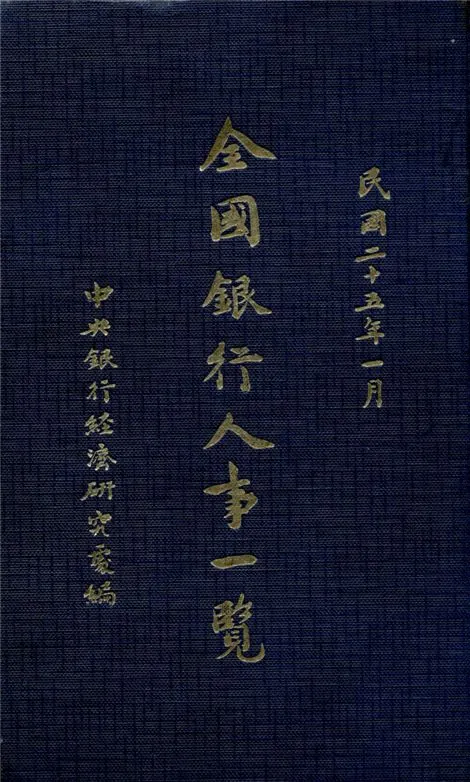 民國二十五年一月
全國銀行人事一覽
中央銀行經濟研究處編